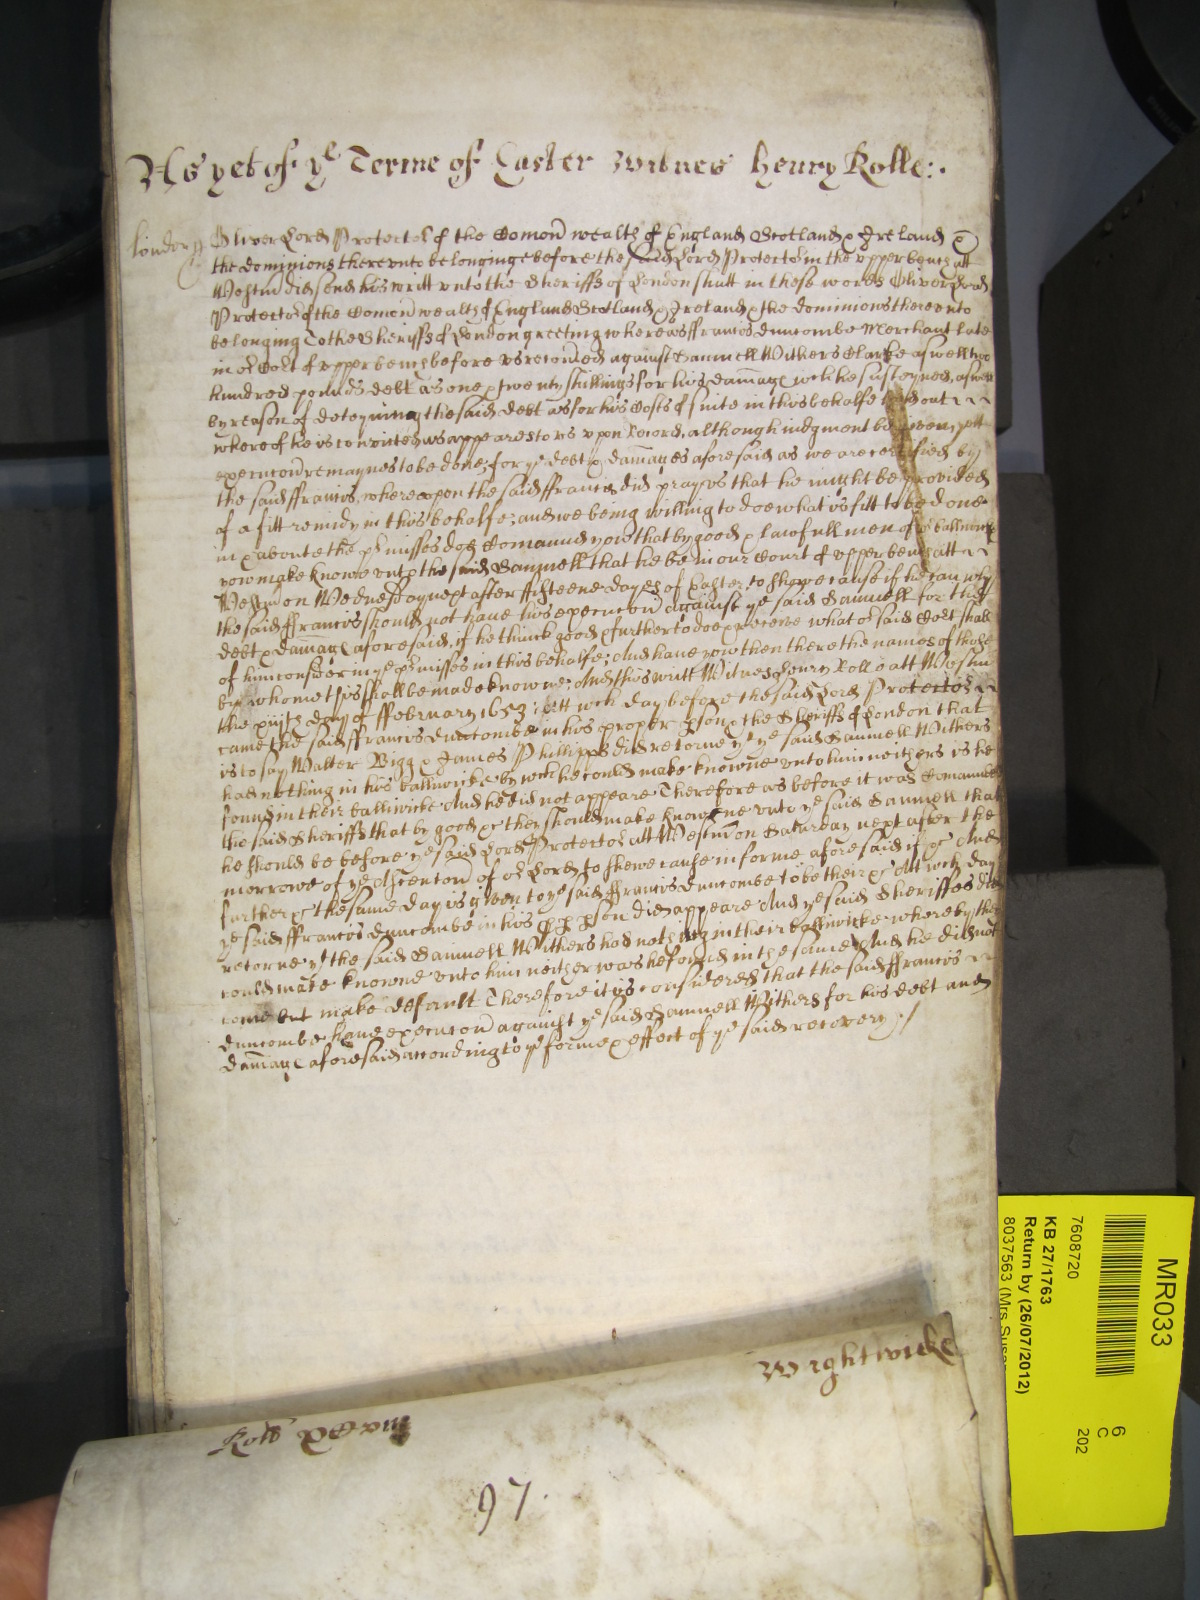 As yet of ye Terme of Easter Witnes Henry Rolle:.
London ss
Oliver Lord Protector of the Comon wealth of England Scotland & Ireland &
the dominions thereunto belonginge before the said Lord Protector in the upper bench att
Westm did send his writt unto the Sheriffs of London shutt in these words Oliver Lord
Protector of the Comon wealth of England Scotland & Ireland & the dominions thereunto
belonging To the Sheriffs of London greeting whereas ffrancis Duncombe Merchant late
in or Cort of upper bench before us recovered against Samuell Withers Clarke aswell two
hundred pounds debt as one & twenty shillings for his damage wch he susteyned, aswell
by reason of deteyning the said debt as for his Costs of suite in this behalfe laid out
whereof he is convicted as appeares to us upon record, although iudgment be given, yett
execucon remaynes to be done; for ye debt & damages aforesaid as we are certified by
the said ffrancis, whereupon the said ffrancis did pray us that he might be provided
of a fitt remidy in this behalfe; and we being willing to doe what is fitt to be done
in & aboute the pmisses doe Comaund you that by good & lawfull men of yr balliwicke
you make knowne unto the said Samuell that he be in our Court of upper bench att
Westm on Wednesday next after fifteene dayes of Easter to shewe cause if he can why
the said ffrancis should not have his execucon against ye said Samuell for the
debt & damage aforesaid, if he thinke good & further to doe & receive what or said Cort shall
of him consider in ye pmisses in this behalfe; And have you then there the names of those
by whome this shall be made knowne; And this writt Witnes Henry Rolle att Westm
the day of ffebruary 1653: Att wch day before the said Lord Protector
came the said ffrancis Duncombe in his proper pson & the Sheriffs of London that
is to say Walter Bigg & James Phillipps did retorne yt ye said Samuell Withers
had nothing in his balliwicke by wch he could make knowne unto him neither is he
found in their balliwicke And he did not appeare Therefore as before it was Comaunded
the said Sheriffs that by good &c they should make knowne unto ye said Samuell that
he should be before ye said Lord Protector att Westm on Saturday next after the
morrowe of ye Ascencon of or Lord to shewe cause in forme aforesaid if &c And
further &c the same day is given to ye said ffrancis Duncombe to be their &c Att wch day
ye said ffrancis Duncombe in his pp pson did appeare And ye said Sheriffes did
retorne yt the said Samuell Withers had nothing in their balliwicke whereby they
could make knowne unto him neither was he found in the same And he did not
come but make default Therefore it is considered that the said ffrancis
Duncombe have execucon against ye said Samuell Withers for his debt and
damage aforesaid according to ye forme & effect of ye said recovery ./
Wightwicke
97.
MR033
6
C
202
7608720
KB 27/1763
Return by (26/07/2012)
8037563 (Mrs Susan